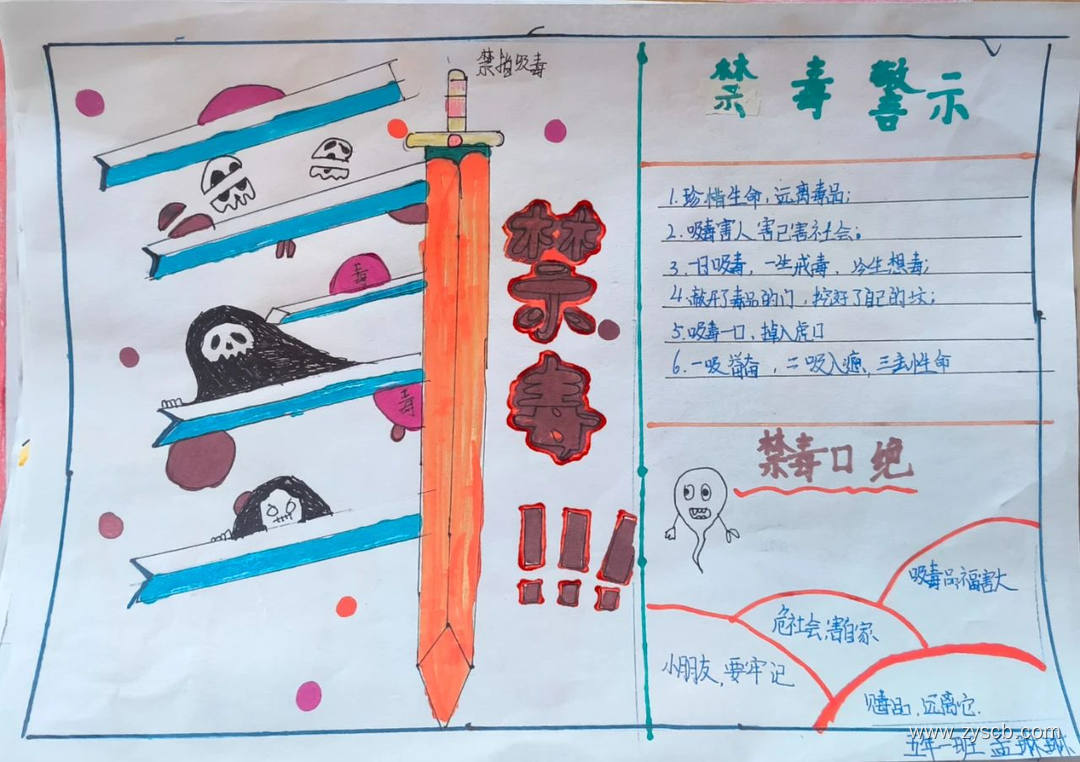 禁指吸毒
禁毒!!!
毒
毒
禁毒警示
1.珍惜生命,远离毒品;
2.吸毒害人害己害社会。
3.一日吸毒,一生戒毒、今生想毒;
4.敲开了毒品的门,挖好了自己的坟;
5.吸毒一口,掉入虎口
6.一吸益奋,二吸入瘾,三丢性命
禁毒口绝
吸毒品祸害大
危社会害自家
小朋友,要牢记
毒品,远离它.
www.zyscb.com
五年一班